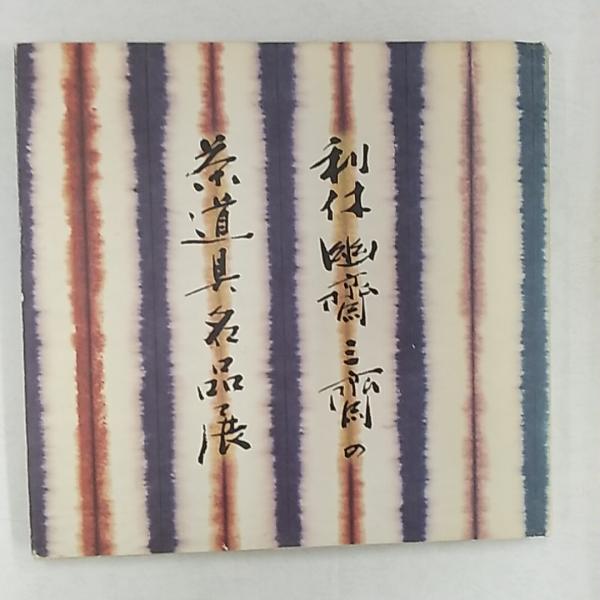 利休幽齋三齋の
茶道具名品展